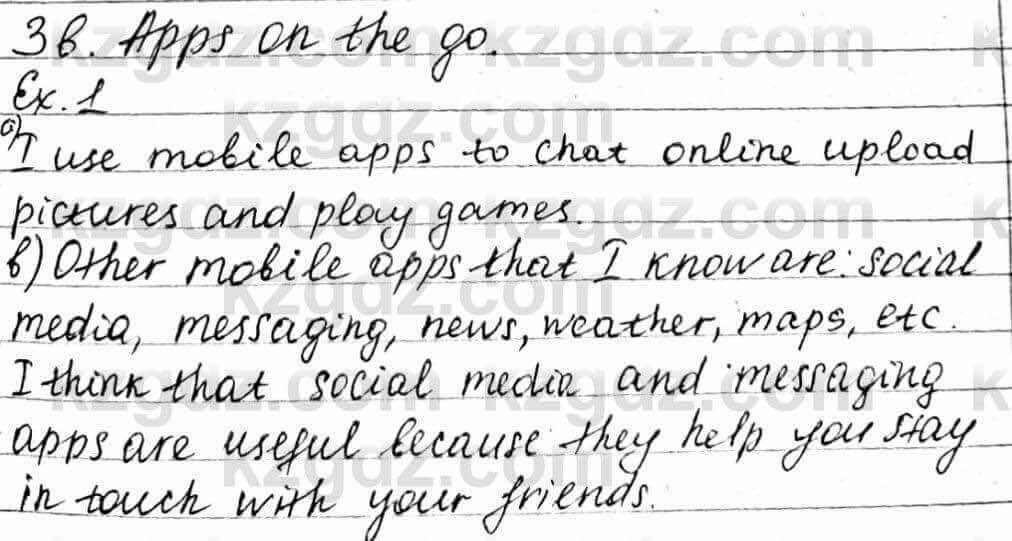 3b. Apps on the go.
Ex. 1
a) I use mobile apps to chat online upload
pictures and play games.
b) Other mobile apps that I know are: social
media, messaging, news, weather, maps, etc.
I think that social media and messaging
apps are useful because they help you stay
in touch with your friends.
kzgdz.com